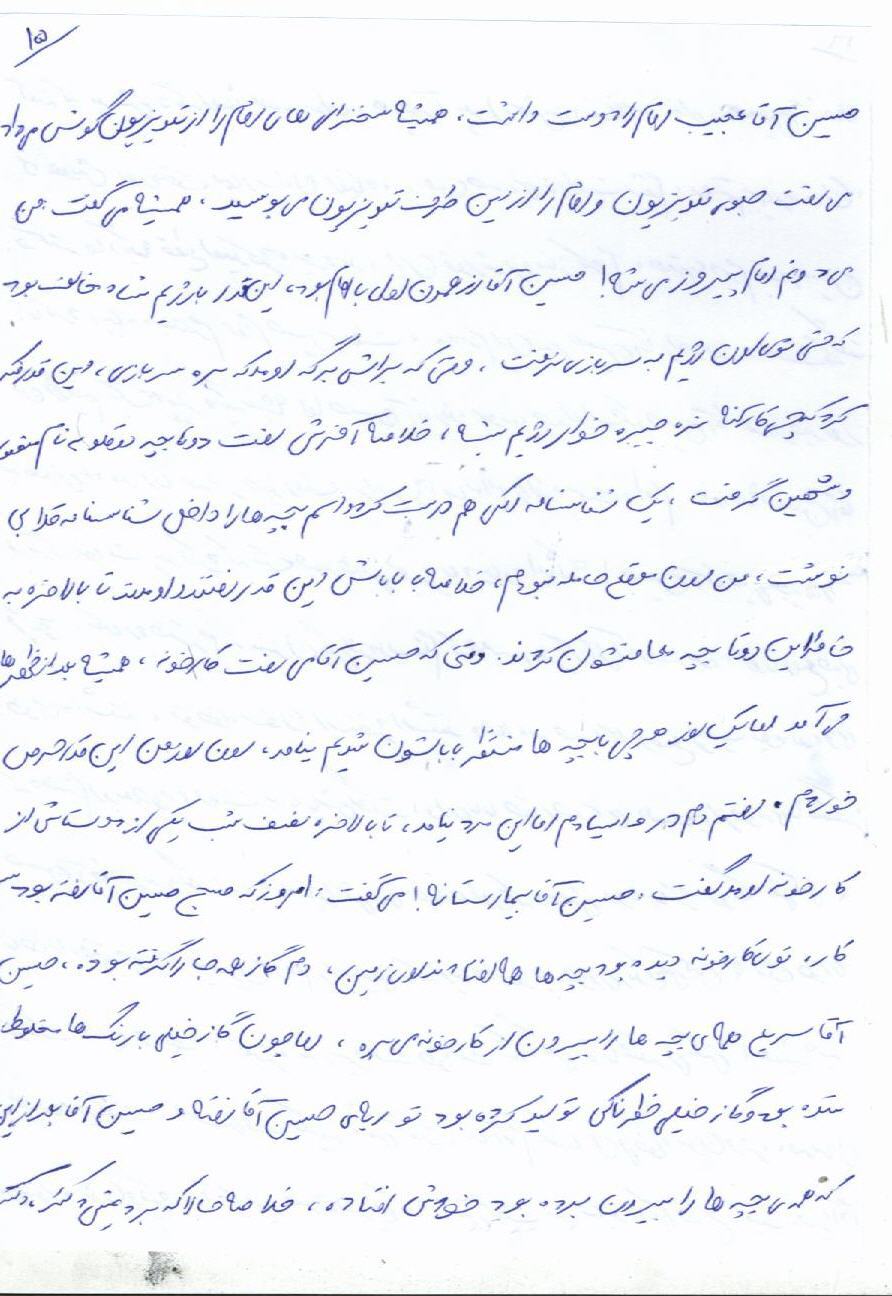 ۱۵
حسین آقا عجیب امام را دوست داشت، همیشه سخنرانی های امام را از تلویزیون گوش می داد
می رفت جلوی تلویزیون و امام را از این طرف تلویزیون می بوسید، همیشه می گفت: من
می دونم امام پیروز می شه! حسین آقا از همون اول با امام بود، این قدر با رژیم شاه مخالف بود
که حتی توی اون رژیم به سربازی نرفت، وقتی که براش برگه اومد که بره سربازی، این قدر فکر
کرد که چی کار کنه نره جیره خوار رژیم بشه، خلاصه آخرش رفت دو تا بچه دوقلو به نام
و شهین گرفت، یک شناسنامه الکی هم درست کرد و اسم بچه ها را داخل شناسنامه قلابی
نوشت، من اون موقع حامله نبودم، خلاصه با باباش این قدر رفتند و اومدند تا بالاخره به
خاطر این دو تا بچه معافشون کردند. وقتی که حسین آقا می رفت کارخونه، همیشه بعد از ظهرها
می آمد اما یک روز هر چی با بچه ها منتظر باباشون شدیم نیامد، اون روز من این قدر حرص
خوردم. رفتم دم در وایسادم اما این مرد نیامد، تا بالاخره نصف شب یکی از دوستاش از
کارخونه اومد گفت: حسین آقا بیمارستانه! می گفت: امروز که صبح حسین آقا رفته بود سر
کار، توی کارخونه دیده بود بچه ها همه افتادند روی زمین، دم گاز همه جا را گرفته بوده، حسین
آقا سریع همه ی بچه ها را بیرون از کارخونه می بره، اما چون گاز خیلی با رنگ ها مخلوط
شده بود و گاز خیلی خطرناکی تولید کرده بود تو ریه ی حسین آقا رفته و حسین آقا بعد از این
که همه ی بچه ها را بیرون برده بود خودش افتاده، خلاصه حالا که بردیمش دکتر، دکتر